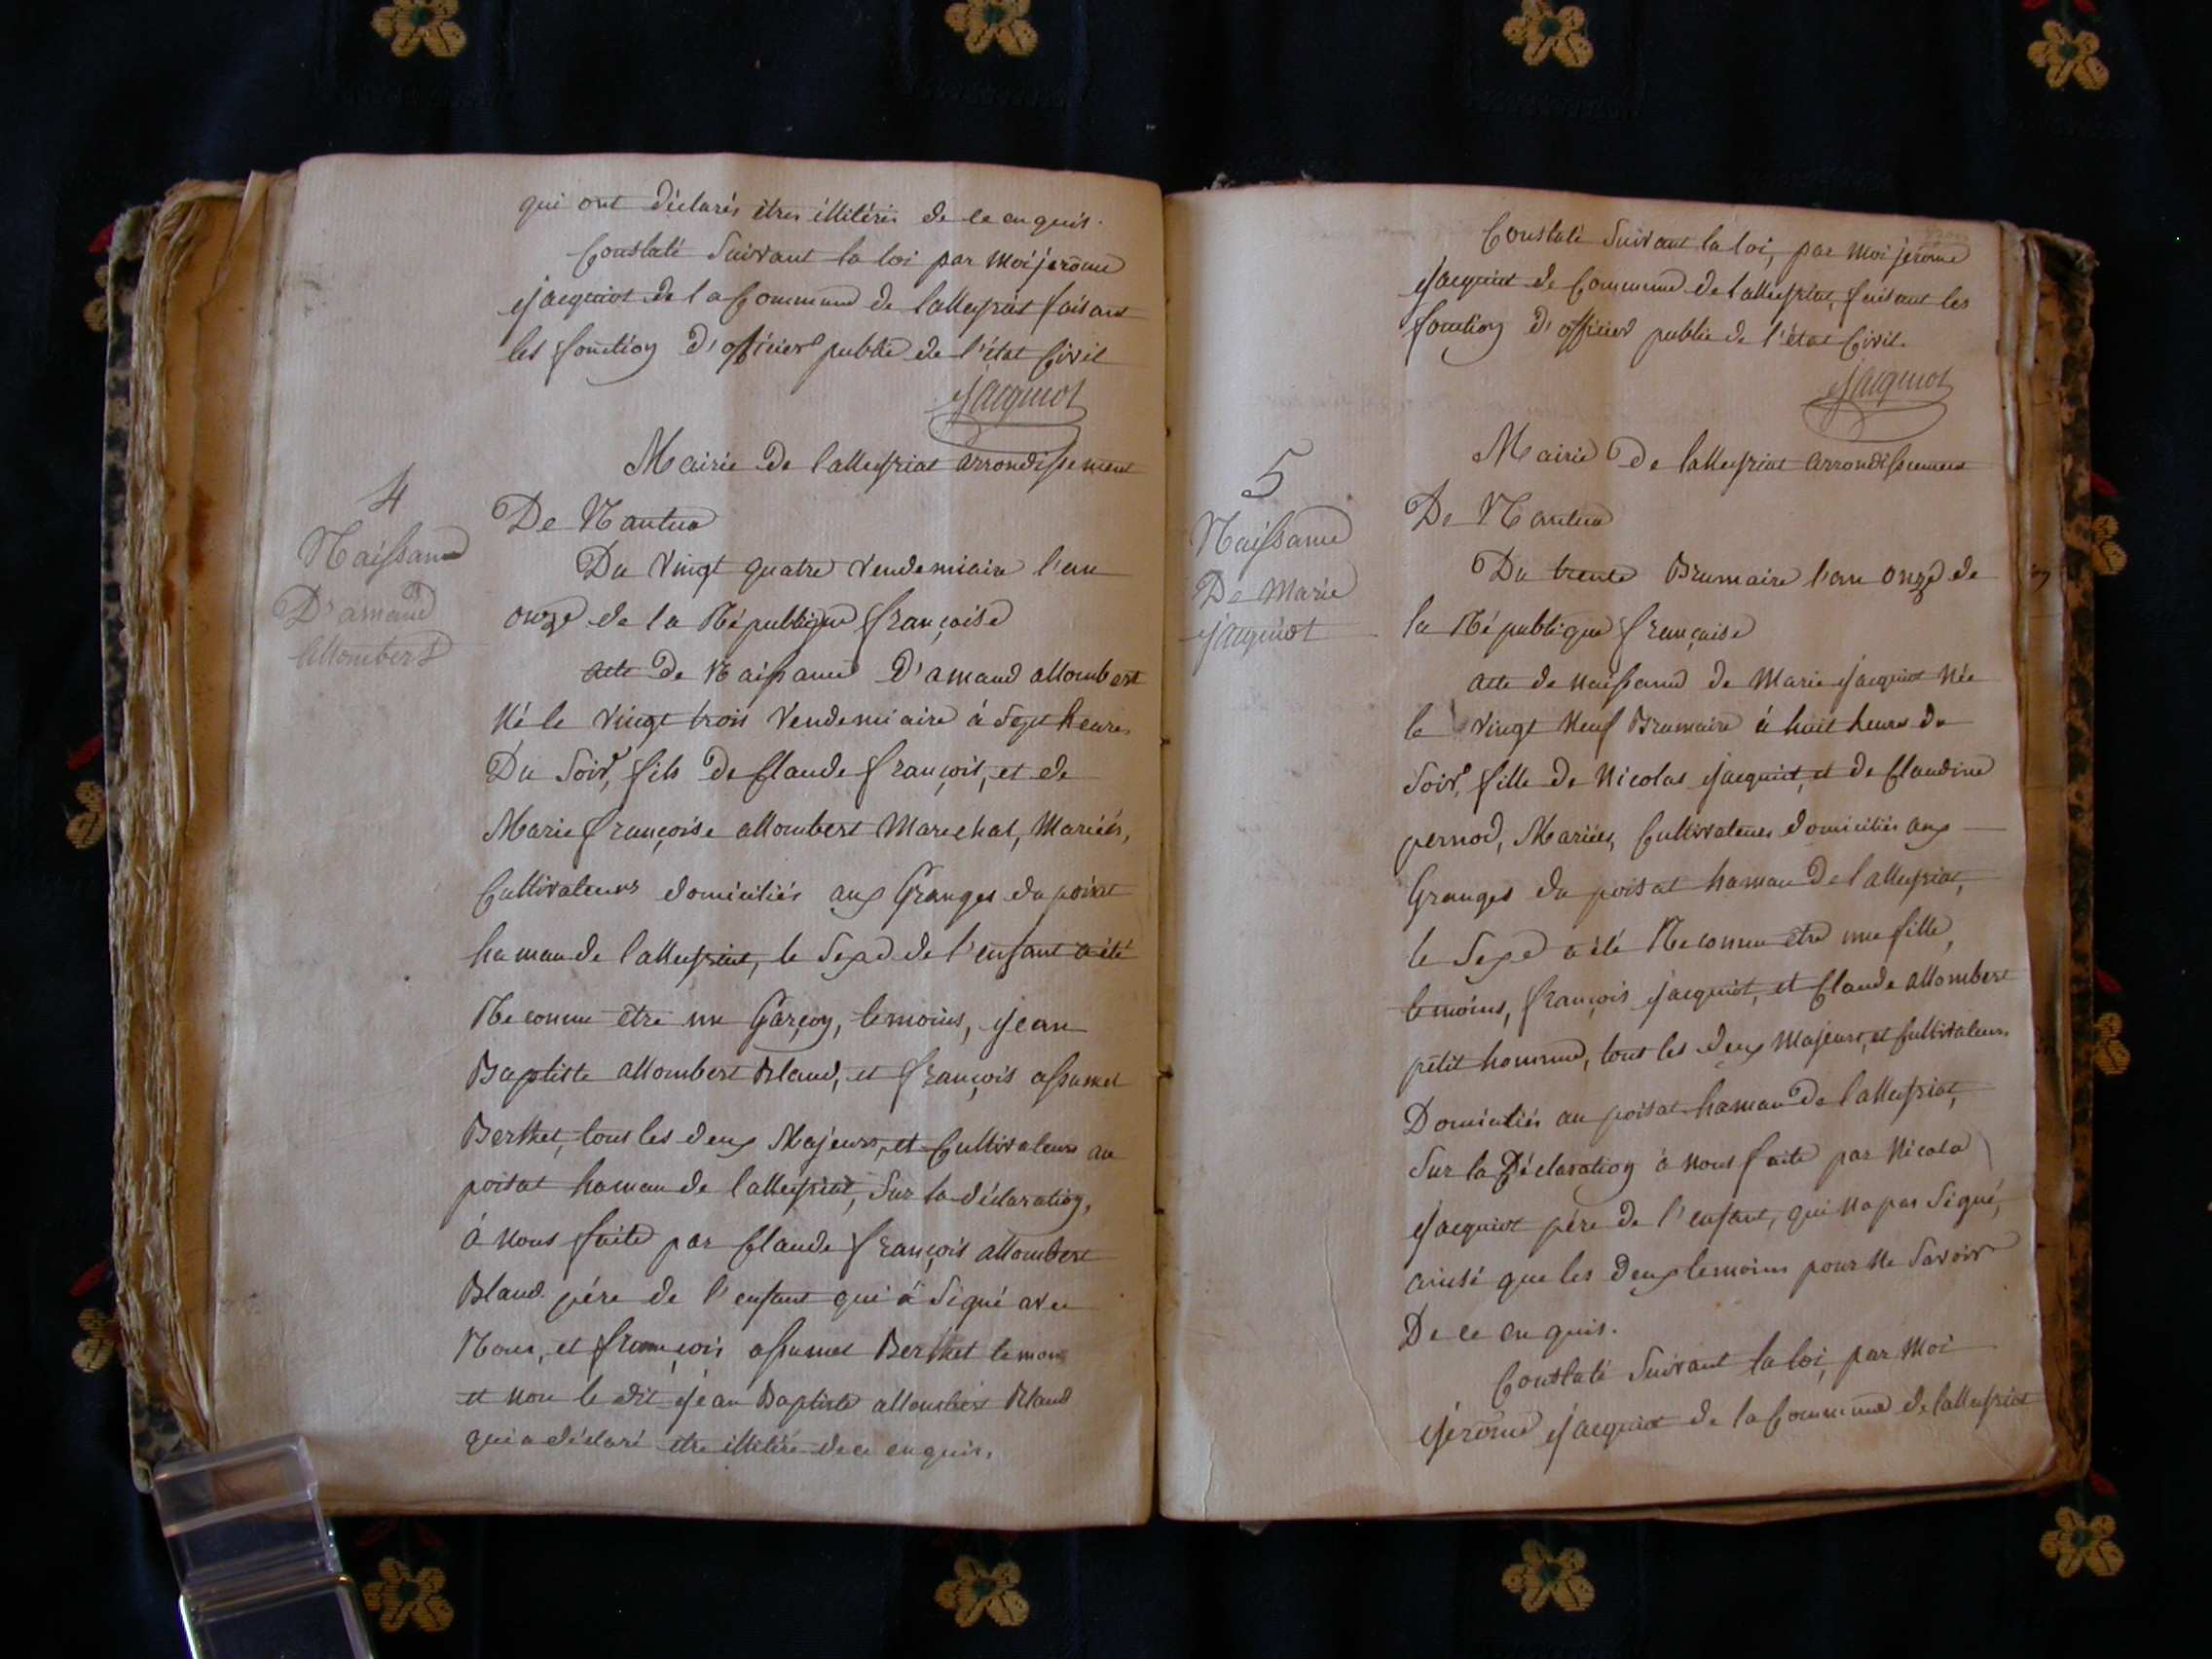 qui ont déclarés êtres illitérés de ce enquis.
Constaté Suivant la loi par Moi jerôme
jacquiot de la Commune de lalleyriat faisant
les fonction d'officier public de l'état Civil
jacquiot
Mairie de lalleyriat arrondissement
De Nantua
4
Naissance
D'amand
allombert
Du Vingt quatre Vendemiaire l'an
onze de la République françoise
acte De Naissance D'amand allombert
Né le Vingt trois Vendemiaire à Sept heures
Du Soir, fils De Claude françois, et de
Marie françoise allombert Marechal, Mariés,
Cultivateurs domiciliés aux Granges du poisat
hamau de lalleyriat, le Sexe de l'enfant a été
Reconnu être un Garçon, temoins, jean
Baptiste allombert Bland, et françois assumel
Berthet, tous les deux Majeurs, et Cultivateurs au
poisat hamau de lalleyriat, Sur la déclaration,
à Nous faite par Claude françois allombert
Bland père de l'enfant qui à Signé avec
Nous, et françois assumel Berthet temoin
et non le dit jean Baptiste allombert Bland
qui a déclaré être illitéré de ce enquis.
Constaté Suivant la loi, par Moi jerôme
jacquiot de Commune de lalleyriat, faisant les
fonction d'officier public de l'état Civil.
jacquiot
Mairie De lalleyriat arrondissement
De Nantua
5
Naissance
De Marie
jacquiot
Du trente Brumaire l'an onze de
la République françaisé
acte de naissance de Marie jacquiot Née
le Vingt Neuf Brumaire à huit heures du
Soir, fille de Nicolas jacquiot, et de Claudine
pernod, Mariées, Cultivateurs domiciliés aux
Granges du poisat hamau de lalleyriat,
le Sexe a été Reconnu être une fille,
temoins, françois jacquiot, et Claude allombert
petit homme, tout les deux Majeurs, et Cultivateurs
Domiciliés au poisat hamau de lalleyriat,
Sur la Déclaration à Nous faite par Nicola
jacquiot père de l'enfant, qui na pas Signé,
ainsi que les deux temoins pour Ne Savoir
De ce enquis.
Constaté Suivant la loi, par Moi
jérôme jacquiot de la Commune de lalleyriat